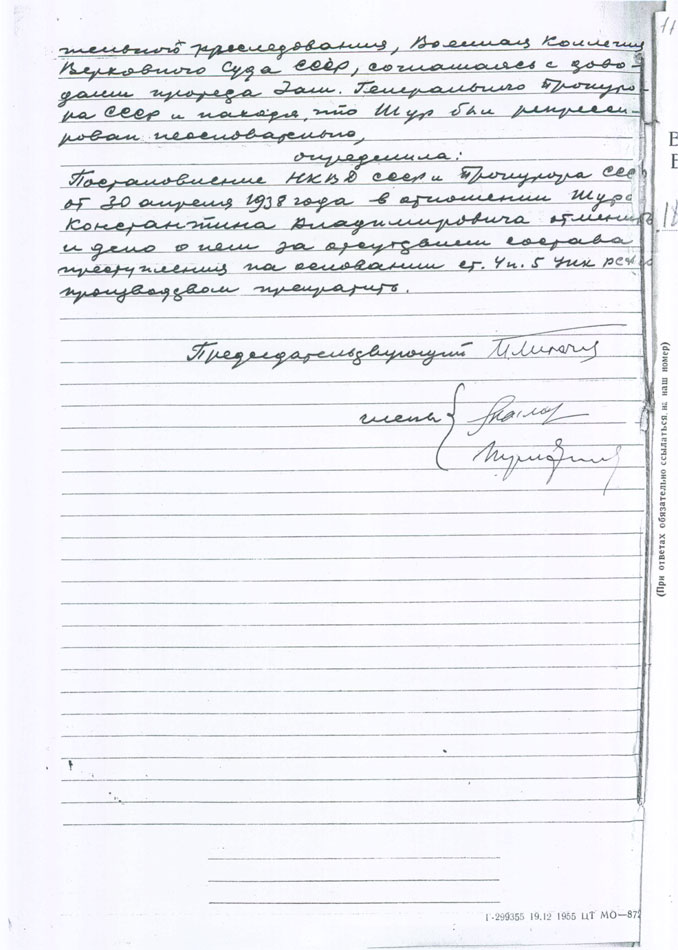 тельного расследования, Военная Коллегия
Верховного Суда СССР, соглашаясь с дово-
дами протеста Зам. Генерального Прокуро-
ра СССР и находя, что Шур был репресси-
рован неосновательно,
определила:
Постановление НКВД СССР и Прокурора СССР
от 30 апреля 1938 года в отношении Шура
Константина Владимировича отменить
и дело о нем за отсутствием состава
преступления на основании ст. 4 п. 5 УПК РСФСР
производством прекратить.
Председательствующий
члены
(При ответах обязательно ссылаться на наш номер)
Г-299355 19.12 1955 ЦТ МО—87